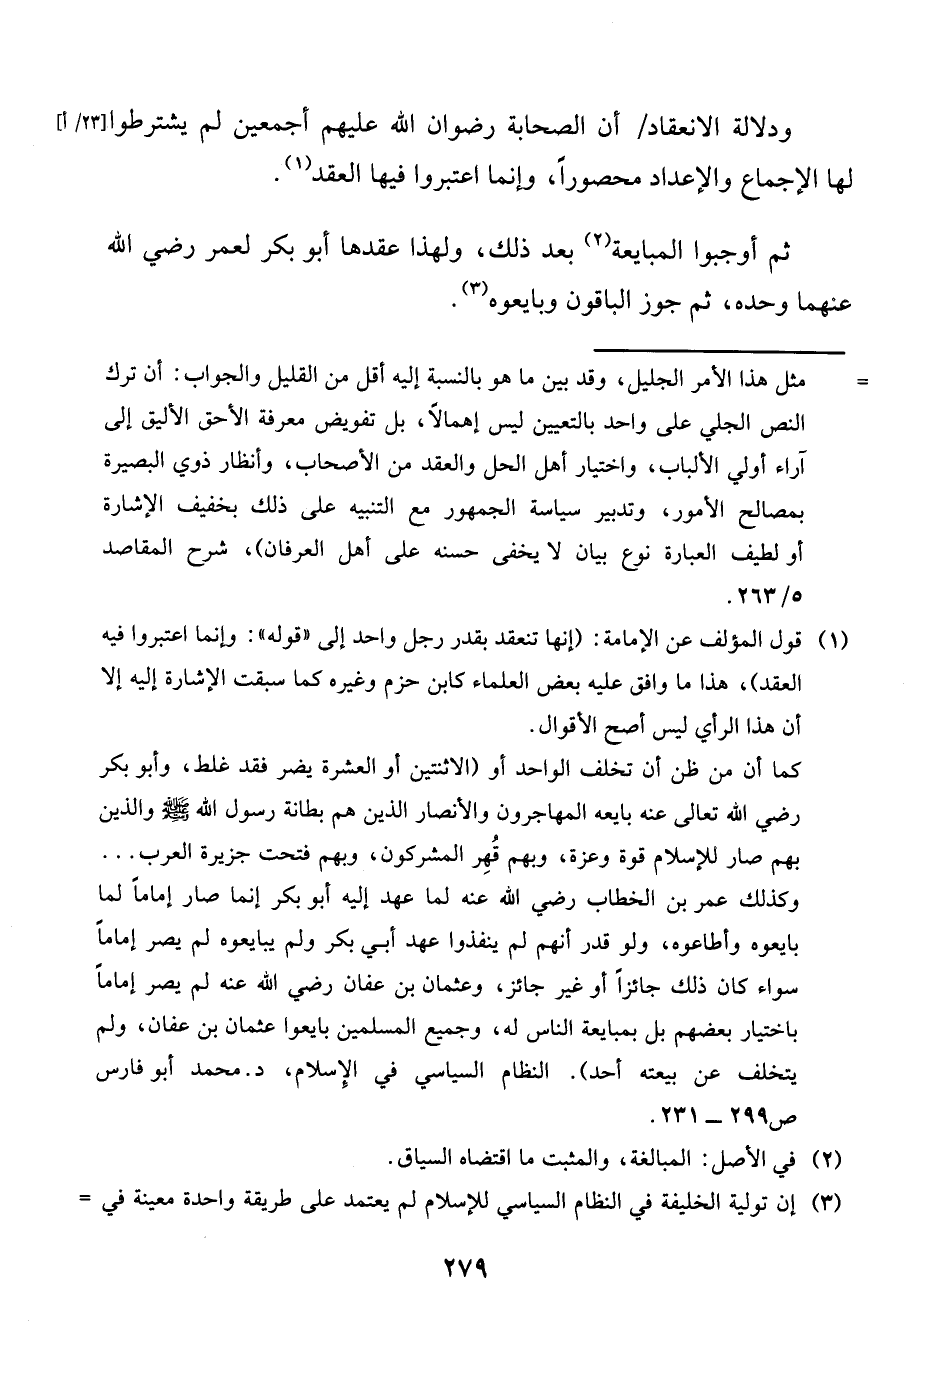 ودلالة الانعقاد/ أن الصحابة رضوان الله عليهم أجمعين لم يشترطوا[٢٣/ أ]
لها الإجماع والإعداد محصوراً، وإنما اعتبروا فيها العقد(١).
ثم أوجبوا المبايعة(٢) بعد ذلك، ولهذا عقدها أبو بكر لعمر رضي الله
عنهما وحده، ثم جوز الباقون وبايعوه(٣).
= مثل هذا الأمر الجليل، وقد بين ما هو بالنسبة إليه أقل من القليل والجواب: أن ترك
النص الجلي على واحد بالتعيين ليس إهمالاً، بل تفويض معرفة الأحق الأليق إلى
آراء أولي الألباب، واختيار أهل الحل والعقد من الأصحاب، وأنظار ذوي البصيرة
بمصالح الأمور، وتدبير سياسة الجمهور مع التنبيه على ذلك بخفيف الإشارة
أو لطيف العبارة نوع بيان لا يخفى حسنه على أهل العرفان)، شرح المقاصد
٥/ ٢٦٣.
(١) قول المؤلف عن الإمامة: (إنها تنعقد بقدر رجل واحد إلى «قوله»: وإنما اعتبروا فيه
العقد)، هذا ما وافق عليه بعض العلماء كابن حزم وغيره كما سبقت الإشارة إليه إلا
أن هذا الرأي ليس أصح الأقوال.
كما أن من ظن أن تخلف الواحد أو (الاثنتين أو العشرة يضر فقد غلط، وأبو بكر
رضي الله تعالى عنه بايعه المهاجرون والأنصار الذين هم بطانة رسول الله ﷺ والذين
بهم صار للإسلام قوة وعزة، وبهم قُهِر المشركون، وبهم فتحت جزيرة العرب...
وكذلك عمر بن الخطاب رضي الله عنه لما عهد إليه أبو بكر إنما صار إماماً لما
بايعوه وأطاعوه، ولو قدر أنهم لم ينفذوا عهد أبي بكر ولم يبايعوه لم يصر إماماً
سواء كان ذلك جائزاً أو غير جائز، وعثمان بن عفان رضي الله عنه لم يصر إماماً
باختيار بعضهم بل بمبايعة الناس له، وجميع المسلمين بايعوا عثمان بن عفان، ولم
يتخلف عن بيعته أحد). النظام السياسي في الإسلام، د. محمد أبو فارس
ص٢٩٩ ــ ٢٣١.
(٢) في الأصل: المبالغة، والمثبت ما اقتضاه السياق.
(٣) إن تولية الخليفة في النظام السياسي للإسلام لم يعتمد على طريقة واحدة معينة في =
٢٧٩